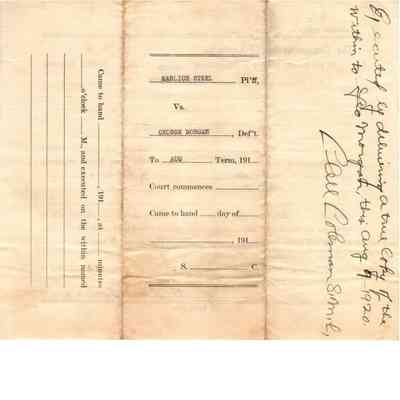 Came to hand 191 , at minutes
o'clock M., and executed on the within named
Pl'ff,
Vs.
GEORGE MORGAN , Def't.
To AUG Term, 191
Court commences
Came to hand day of
, 191
S. C
Executed by delivering a true Copy of the
within to Geo Morgan, this Aug 1920.
Coleman